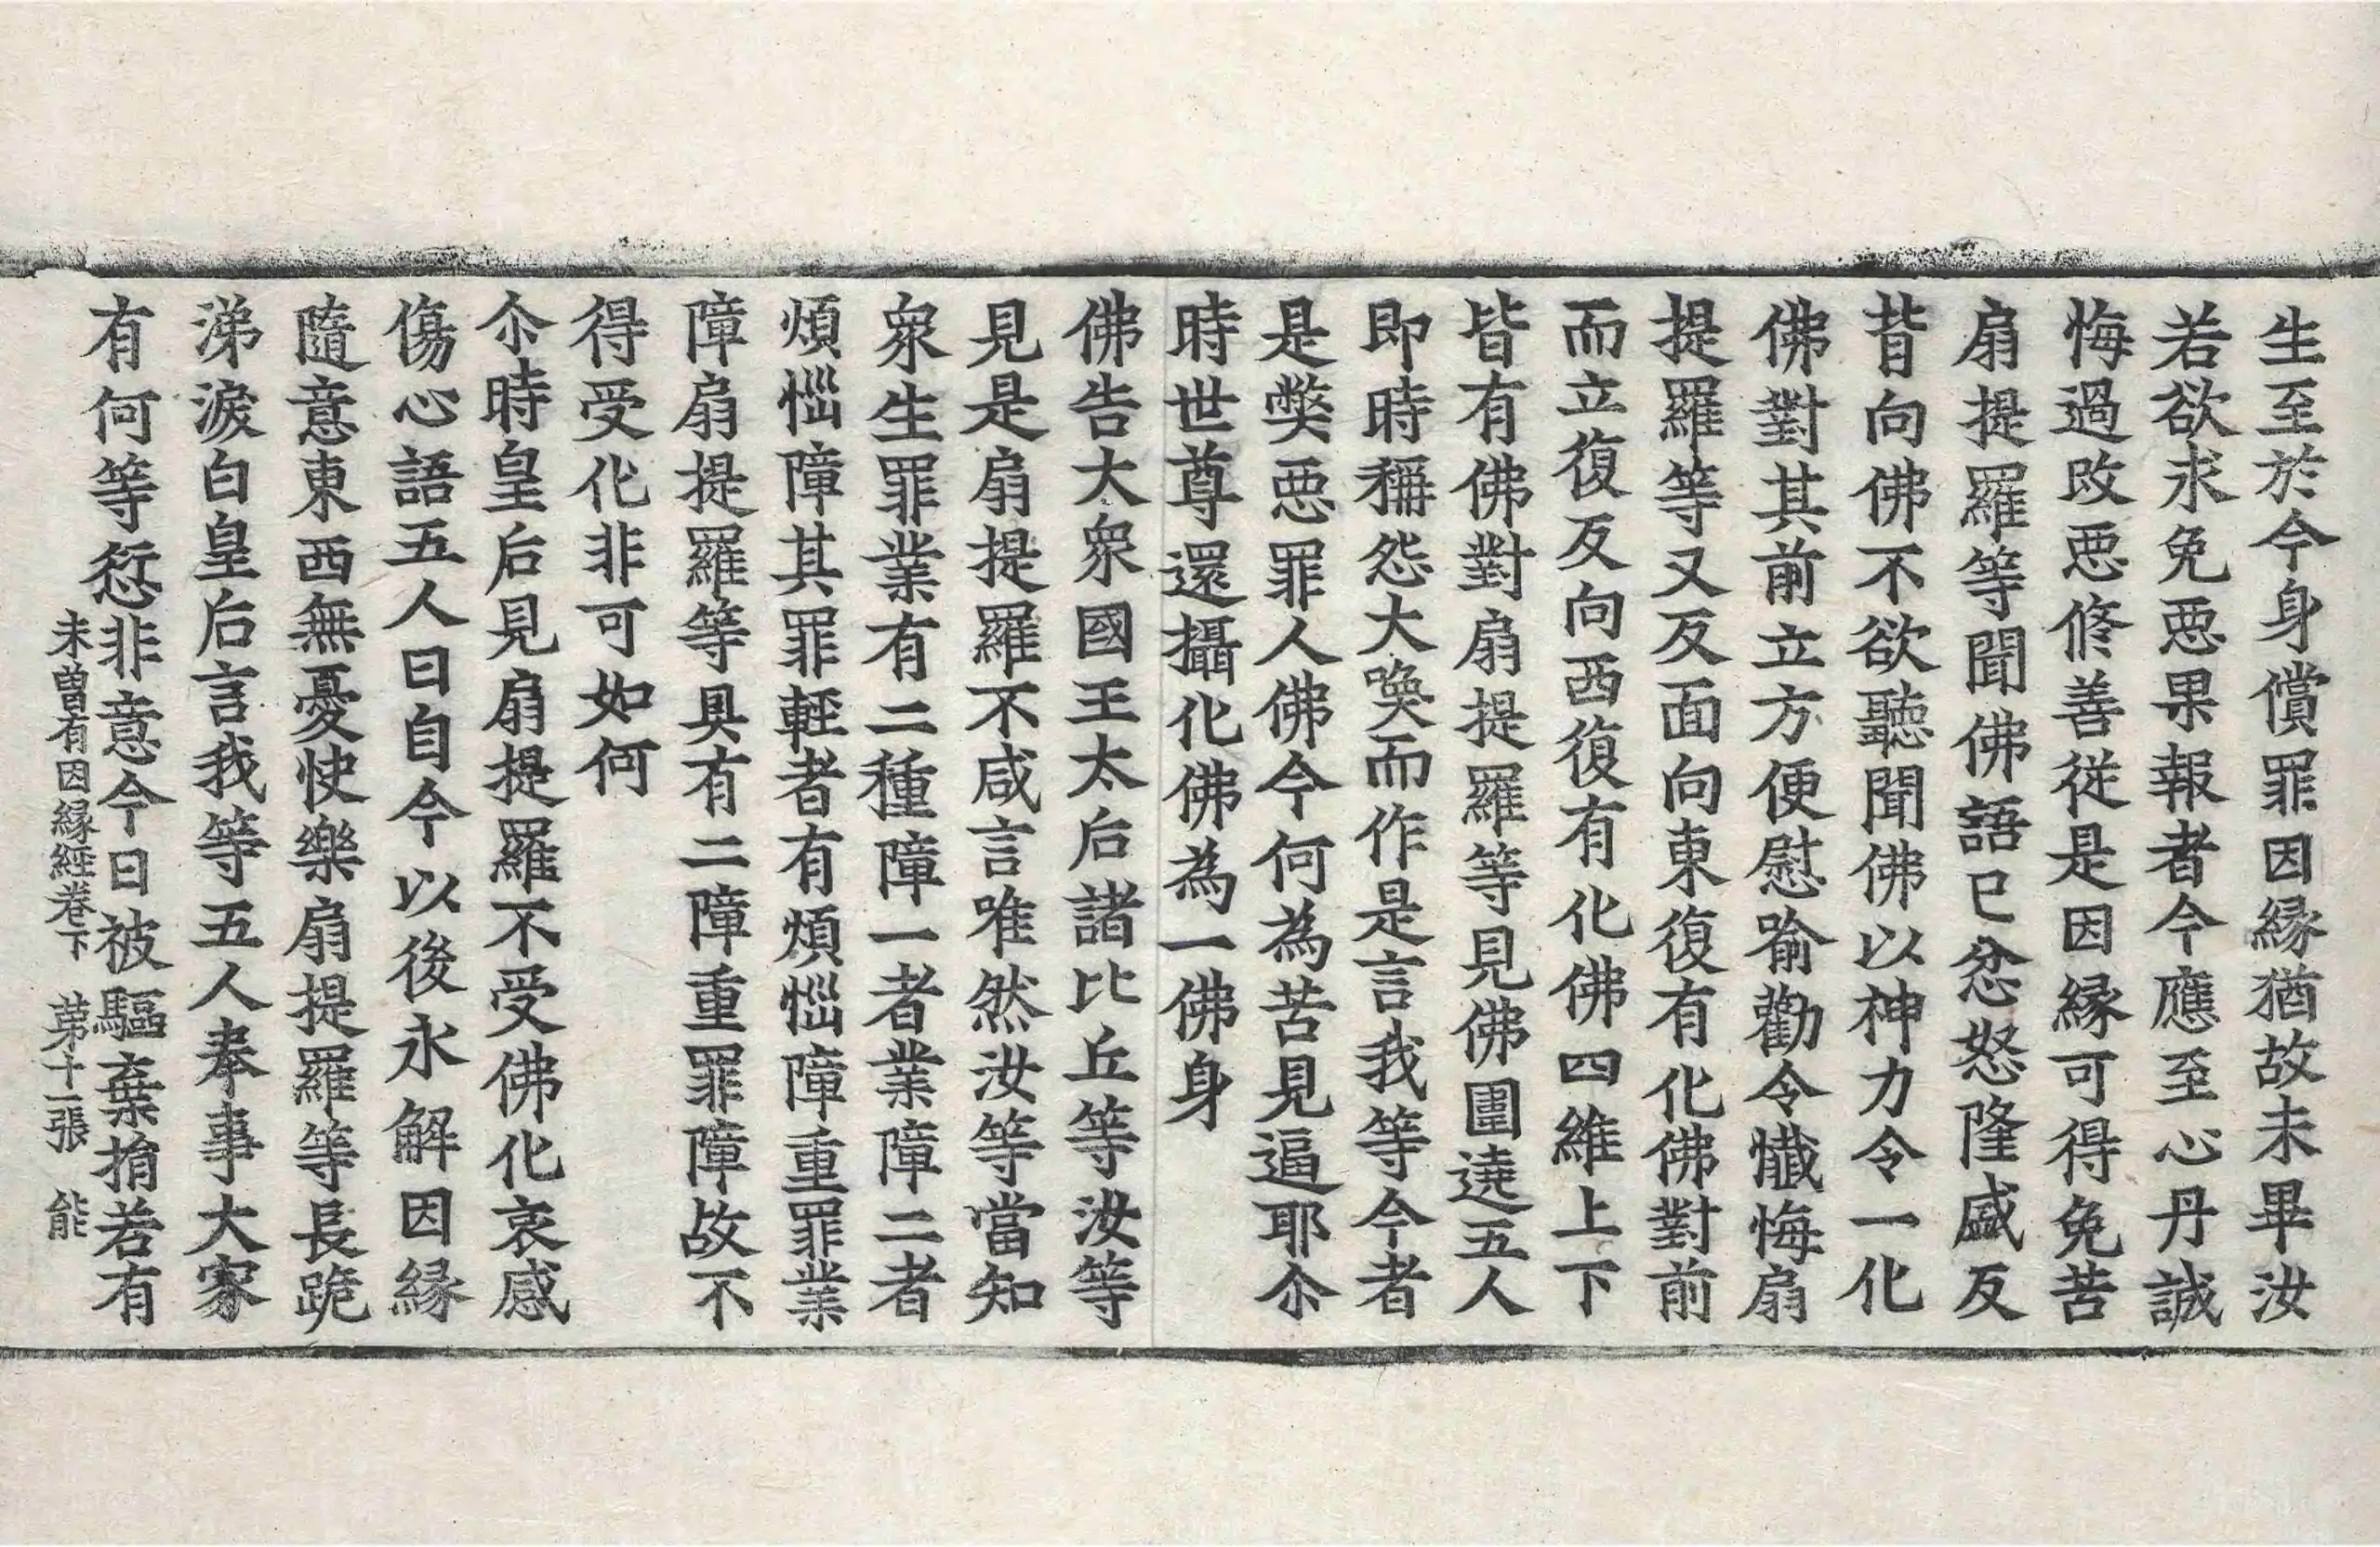 生至於今身償罪因縁猶故未畢汝
若欲求免惡果報者今應至心丹誠
悔過改惡修善從是因縁可得免苦
扇提羅等聞佛語已忿怒隆盛反
背向佛不欲聽聞佛以神力令一化
佛對其前立方便慰喻勸令懺悔扇
提羅等又反面向東復有化佛對前
而立復反向西復有化佛四維上下
皆有佛對扇提羅等見佛圍遶五人
即時稱怨大喚而作是言我等今者
是弊惡罪人佛今何為苦見逼耶尒
時世尊還攝化佛為一佛身
佛告大衆國王太后諸比丘等汝等
見是扇提羅不咸言唯然汝等當知
衆生罪業有二種障一者業障二者
煩惱障其罪輕者有煩惱障重罪業
障扇提羅等具有二障重罪障故不
得受化非可如何
尒時皇后見扇提羅不受佛化哀感
傷心語五人曰自今以後永解因縁
隨意東西無憂快樂扇提羅等長跪
涕淚白皇后言我等五人奉事大家
有何等愆非意今日被驅棄捐若有
未曾有因縁經卷下　第十二張　能